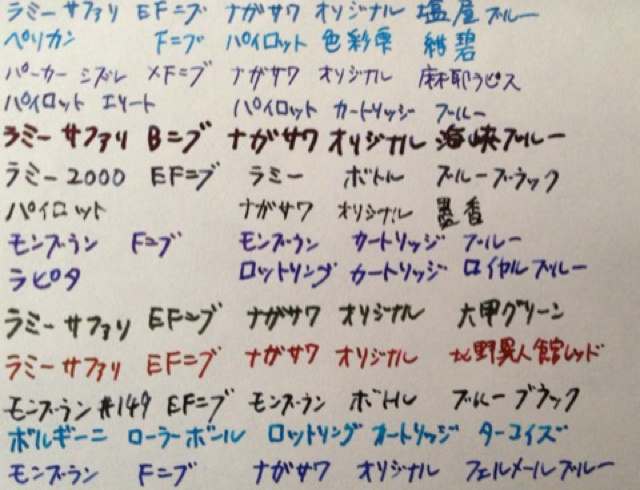 ラミー サファリ EFニブ ナガサワ オリジナル 塩屋ブルー
ペリカン Fニブ パイロット 色彩雫 紺碧
パーカー MFニブ ナガサワ オリジナル 麻耶ラピス
パイロット エリート パイロット カートリッジ ブルー
ラミー サファリ Bニブ ナガサワ オリジナル 海峡ブルー
ラミー 2000 EFニブ ラミー ボトル ブルーブラック
パイロット ナガサワ オリジナル 墨香
モンブラン Fニブ モンブラン カートリッジ ブルー
ラピタ ロットリング カートリッジ ロイヤルブルー
ラミー サファリ EFニブ ナガサワ オリジナル 六甲グリーン
ラミー サファリ EFニブ ナガサワ オリジナル 北野異人館レッド
モンブラン #149 EFニブ モンブラン ボトル ブルーブラック
ボルギーニ ローラーボール ロットリング カートリッジ ターコイズ
モンブラン Fニブ ナガサワ オリジナル フェルメールブルー